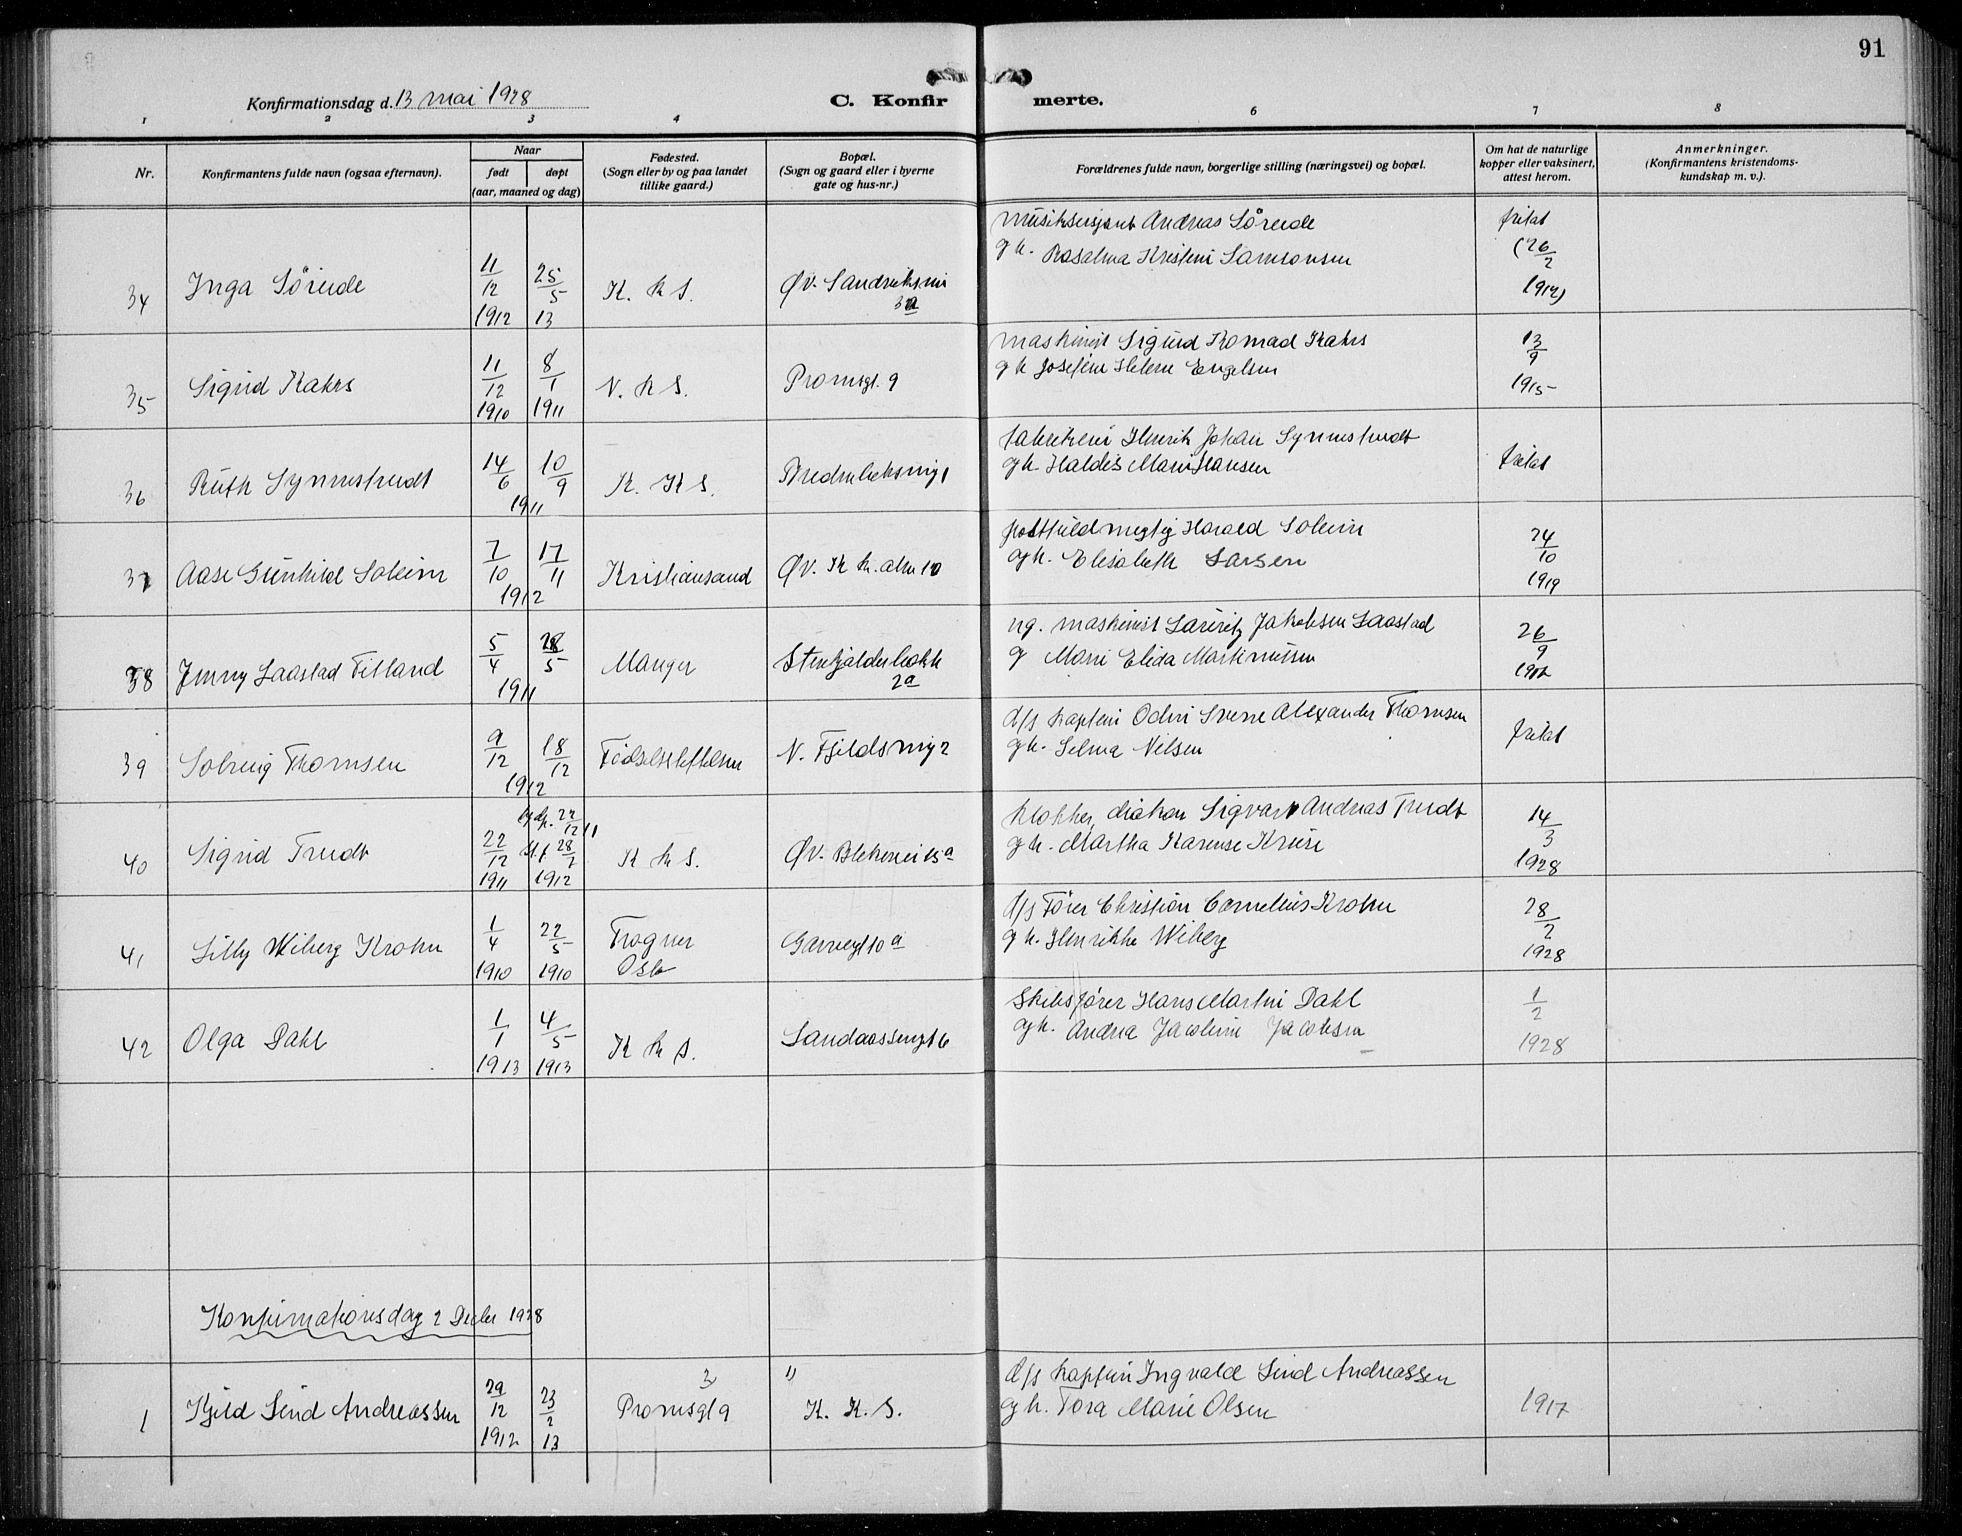 91
Konfirmationsdag d. 13 mai 1928
C. Konfirmerte.
1 2 3 4 6 7 8
Nr.
Konfirmantens fulde navn (ogsaa efternavn).
Naar
født døpt
(aar, maaned og dag)
Fødested.
(Sogn eller by og paa landet
tillike gaard.)
Bopæl.
(Sogn og gaard eller i byerne
gate og hus-nr.)
Forældrenes fulde navn, borgerlige stilling (næringsvei) og bopæl.
Om hat de naturlige
kopper eller vaksinert,
attest herom.
Anmerkninger.
(Konfirmantens kristendoms-
kundskap m. v.).
34 Inga Söreide 11/12 1912 25/5 13 K. K S. Øv. 3a
Andreas Söreide
og h. Kristine Samsonsen
fritat (26/2
35 Sigrid Kahrs 11/12 1910 8/1 1911 N. K S. Promsgt. 9
maskinist Sigurd Konrad Kahrs
og h Josefine Helene Engelsen
13/9 1915
36 Ruth 14/6 10/9 1911 K. K S.
Henrik Johan
og h. Haldis Marie Hansen
fritat
37 Aase Gunhild Soleim 7/10 17/11 1912 Kristiansand Øv. K K. alm 10
postfuldmegtig Harald Soleim
og h. Elisabeth Larsen
24/10 1919
38 Jenny Laastad Fitland 5/4 28/5 1911 Manger 2a
ug. maskinist Lauritz Jakobsen Laastad
og Marie Elida Martinussen
26/9
39 Solveig Thomsen 9/12 18/12 1912 N. Fjeldsmug 2
d/s kaptein Odin Sverre Alexander Thomsen
og h. Selma Nilsen
fritat
40 Sigrid 22/12 1911 1912 K K S. Øv. Blekevei 15a
klokker, diakon Sigvart Andreas
og h. Martha Karense Kruse
14/3 1928
41 Lilly Wiberg Krohn 1/4 1910 22/5 1910 Frogner
Oslo
Garvergt 10 a
d/s Fører Christian Cornelius Krohn
og h. Henrikke Wiberg
28/2 1928
42 Olga Dahl 1/1 1913 4/5 1913 K K S. Sandaassvengt 6
Skibsfører Hans Martin Dahl
og h. Andrea Jacobine Jacobsen
1/2 1928
Konfirmationsdag 2 Decbr 1928
1 Kjeld Lind Andreassen 29/12 1912 23/2 13 Promsgt 9 K. K. S.
d/s kaptein Ingvald Lind Andreassen
og h. Tora Marie Olsen
1917